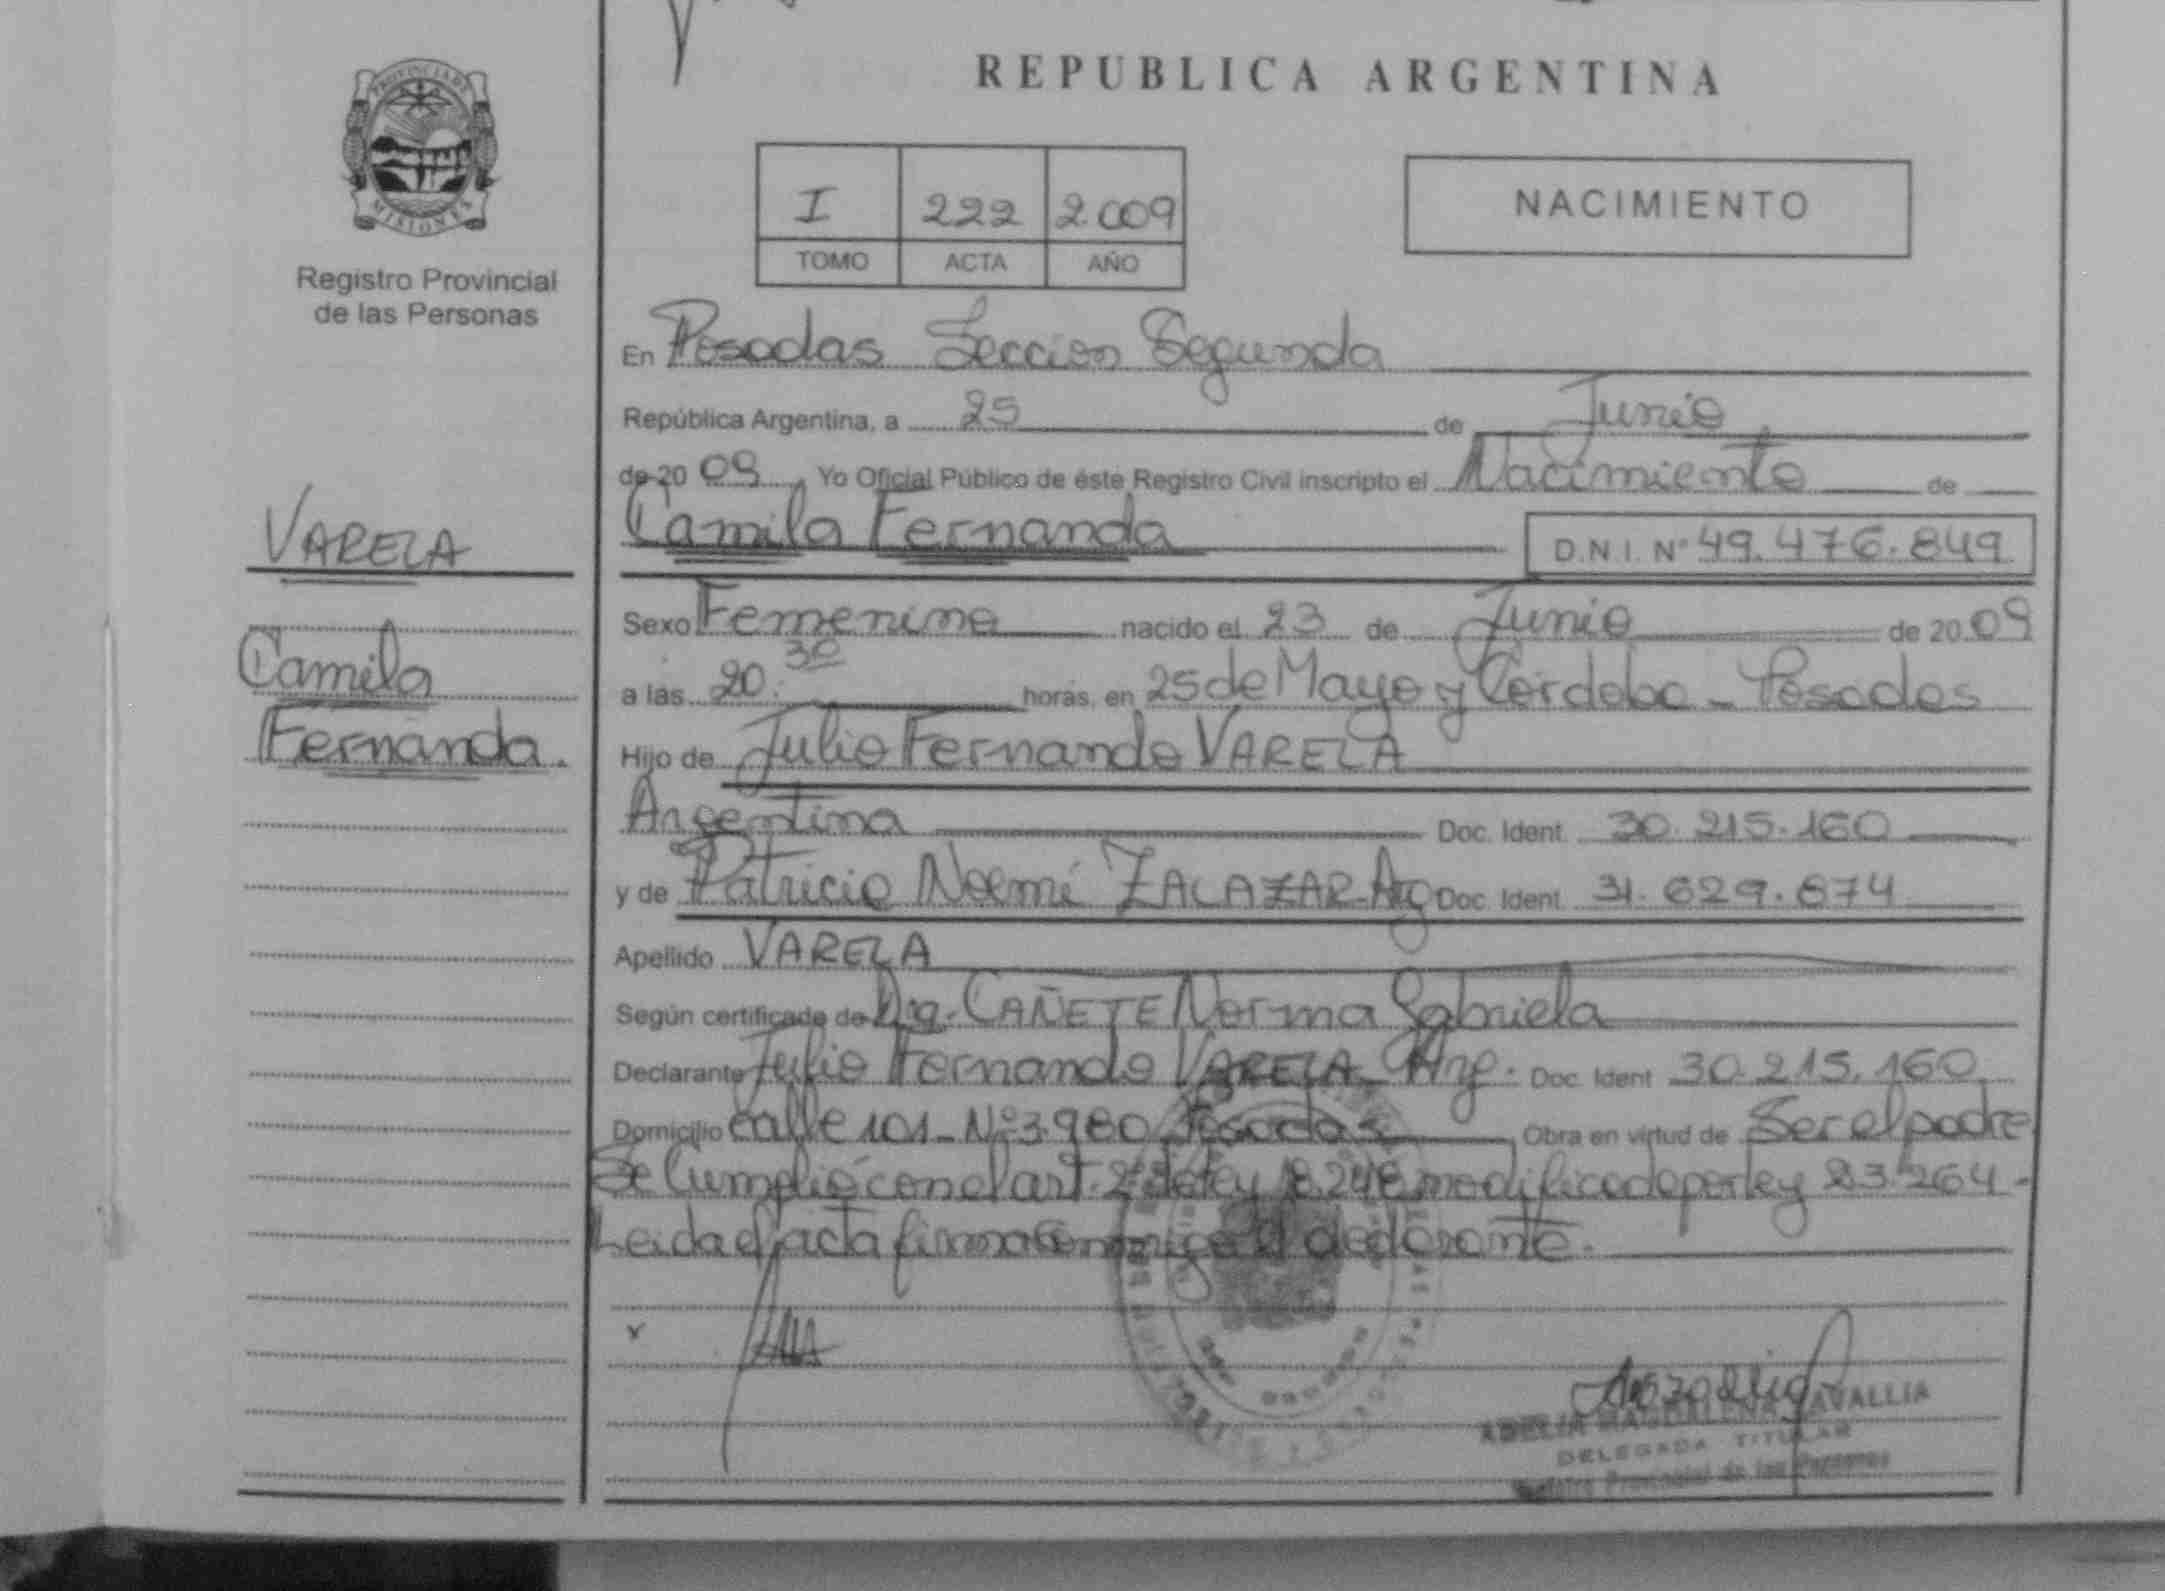 REPUBLICA ARGENTINA
PROVINCIA DE
MISIONES
Registro Provincial
de las Personas
I 222 2.009
TOMO ACTA AÑO
NACIMIENTO
En Posadas Seccion Segunda
República Argentina, a 25 de Junio
de 20 09 Yo Oficial Público de éste Registro Civil inscripto el Nacimiento de
VARELA
Camila
Fernanda.
Camila Fernanda D.N.I. Nº 49.476.849
Sexo Femenino nacido el 23 de Junio de 20 09
a las 20:30 horas, en 25 de Mayo y Córdoba - Posadas
Hijo de Julio Fernando VARELA
Argentina Doc. Ident. 30.215.160
y de Patricia Noemí ZALAZAR - Arg Doc. Ident. 31.629.874
Apellido VARELA
Según certificado de Dra. CAÑETE Norma Gabriela
Declarante Julio Fernando VARELA - Arg. Doc. Ident 30.215.160
Domicilio calle 101 - Nº 3.980 Posadas Obra en virtud de Ser el padre
Se Cumplió con el art. 2º de ley 18.248 modificado por ley 23.264 -
Leida el acta firma conmigo el declarante.
x
ADELIA MAGDALENA RAVALLIA
DELEGADA TITULAR
Registro Provincial de las Personas